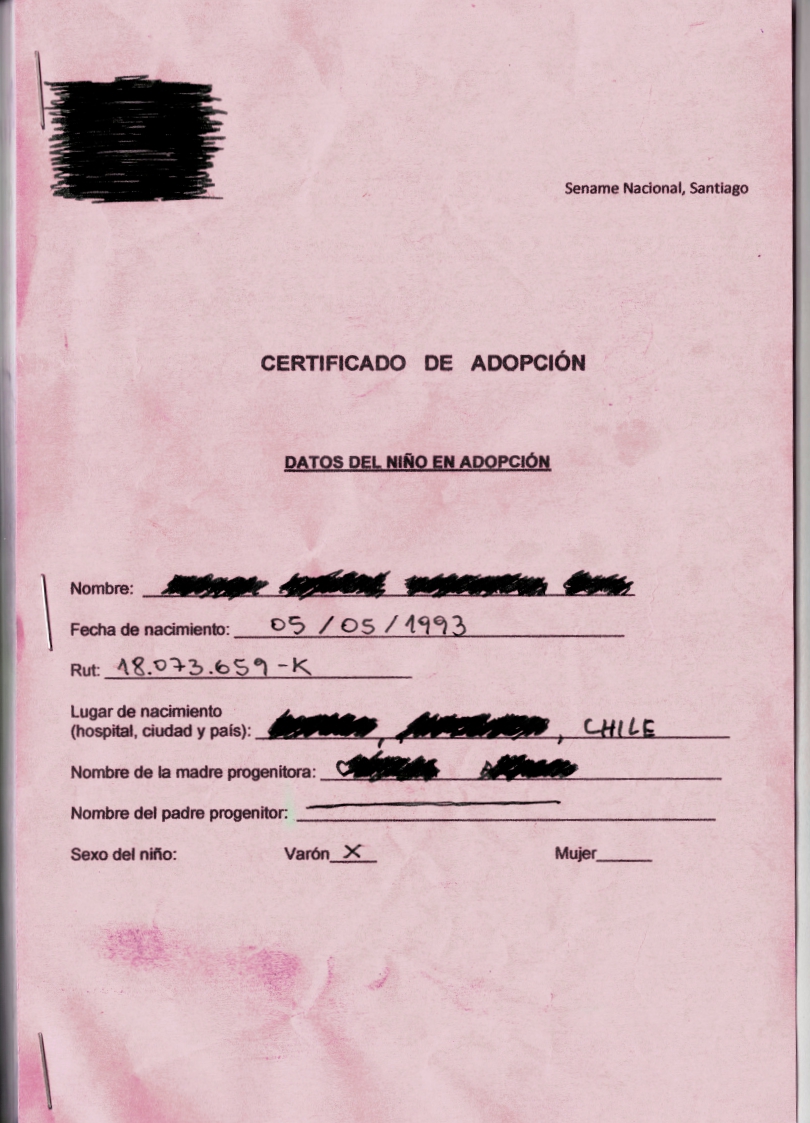 Sename Nacional, Santiago
CERTIFICADO DE ADOPCIÓN
DATOS DEL NIÑO EN ADOPCIÓN
Nombre:
Fecha de nacimiento: 05/05/1993
Rut: 18.073.659-K
Lugar de nacimiento
(hospital, ciudad y país): , , CHILE
Nombre de la madre progenitora:
Nombre del padre progenitor:
Sexo del niño: Varón X Mujer